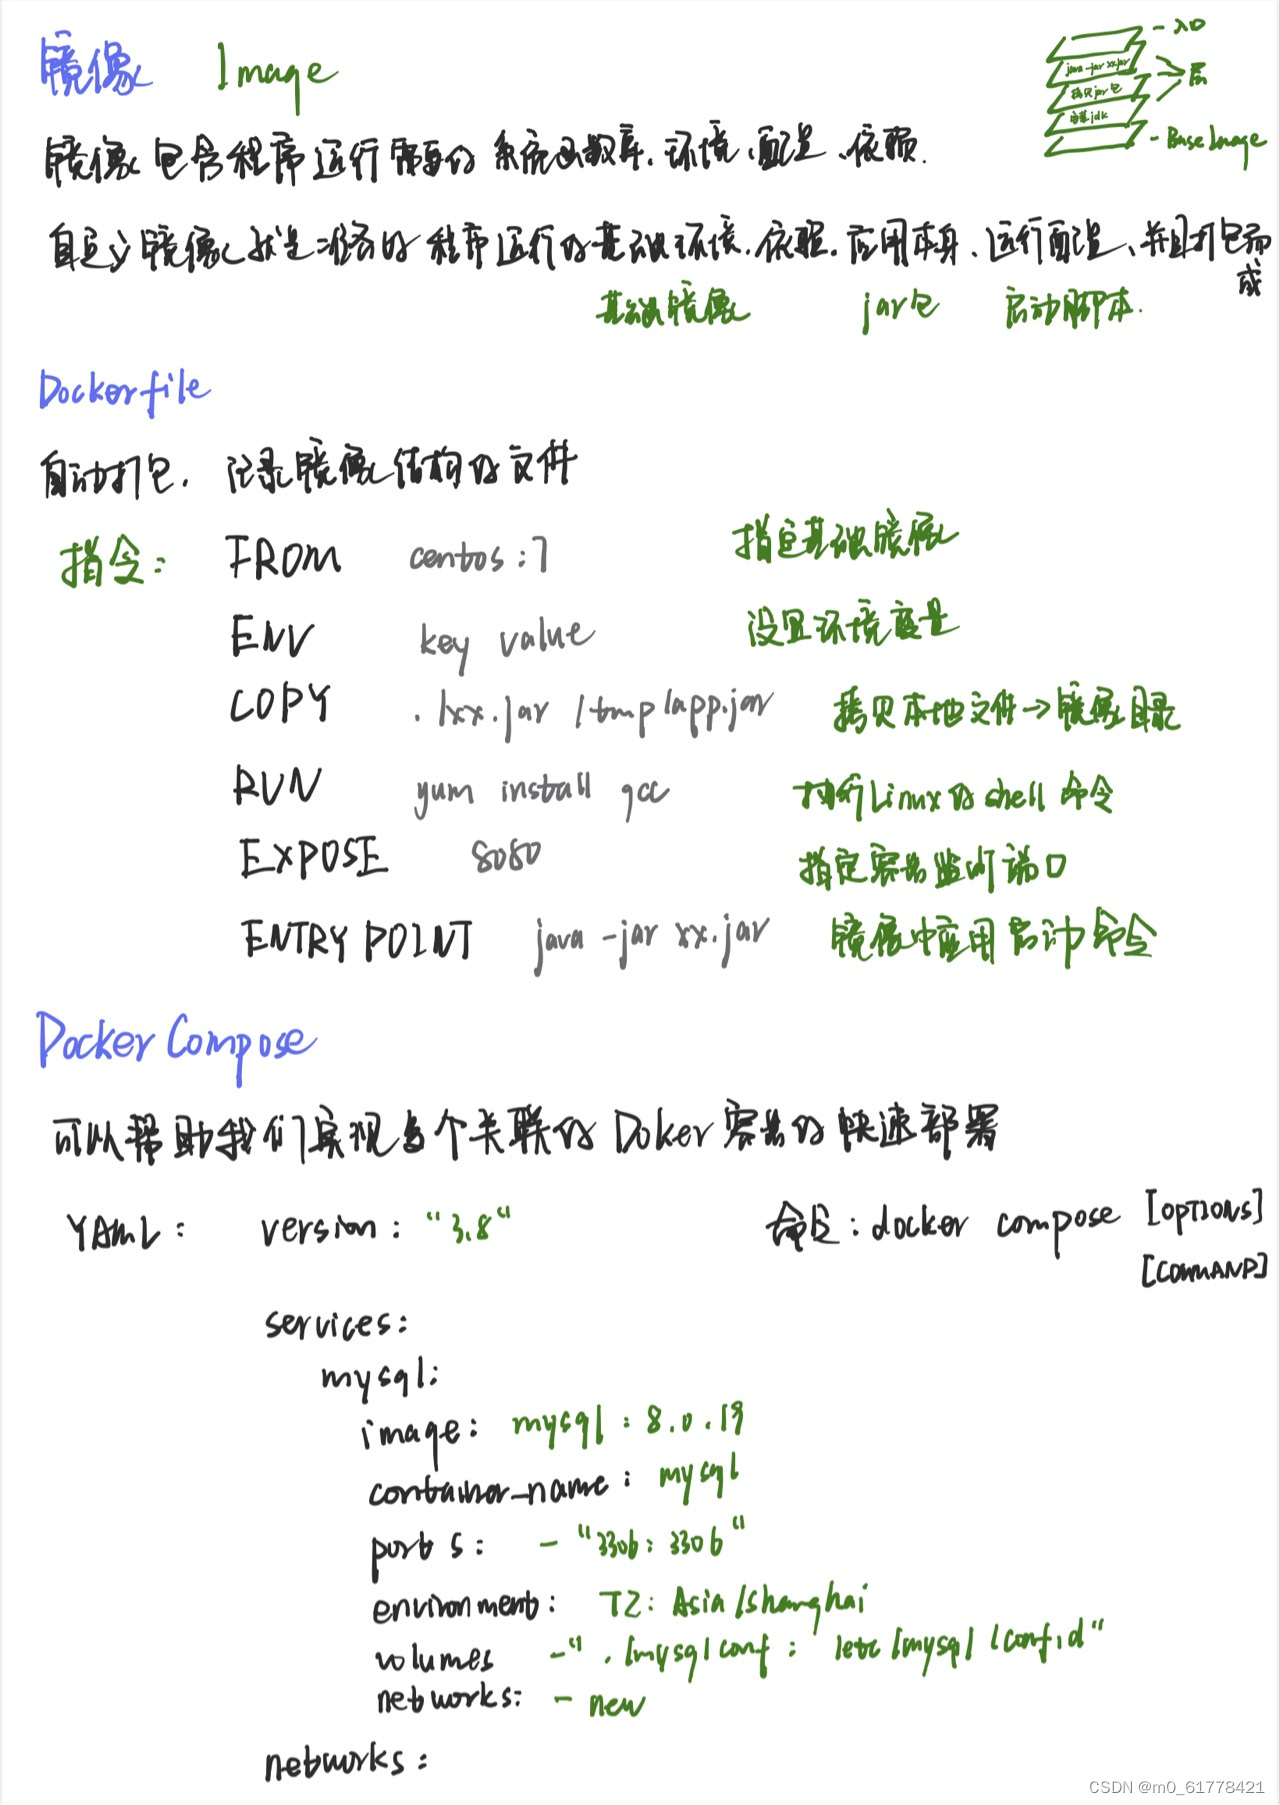 镜像 Image
入口
java -jar xx.jar
层
拷贝jar包
安装jdk
BaseImage
镜像包含程序运行需要的系统函数库、环境、配置、依赖.
自定义镜像就是准备的程序运行的基础环境、依赖、应用本身、运行配置、并且打包而成
基础镜像 jar包 启动脚本.
Dockerfile
自动打包. 记录镜像结构的文件
指令: FROM centos:7 指定基础镜像
ENV key value 设置环境变量
COPY ./xx.jar /tmp/app.jar 拷贝本地文件→镜像目录
RUN yum install gcc 执行Linux的shell命令
EXPOSE 8080 指定容器监听端口
ENTRYPOINT java -jar xx.jar 镜像中应用启动命令
Docker Compose
可以帮助我们实现多个关联的Doker容器的快速部署
YAML: version: "3.8" 命令: docker compose [OPTIONS]
[COMMAND]
services:
mysql:
image: mysql:8.0.19
container_name: mysql
ports: - "3306:3306"
environment: TZ: Asia/Shanghai
volumes -"./mysql/conf: /etc/mysql/conf.d"
networks: - new
networks:
CSDN @m0_61778421